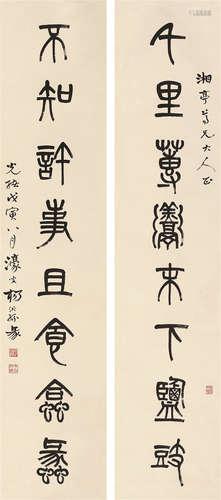 湘亭尊兄大人正
千里蓴羹未下鹽豉
不知許事且食蛤蜊
光緒戊寅八月濠叟楊沂孫篆